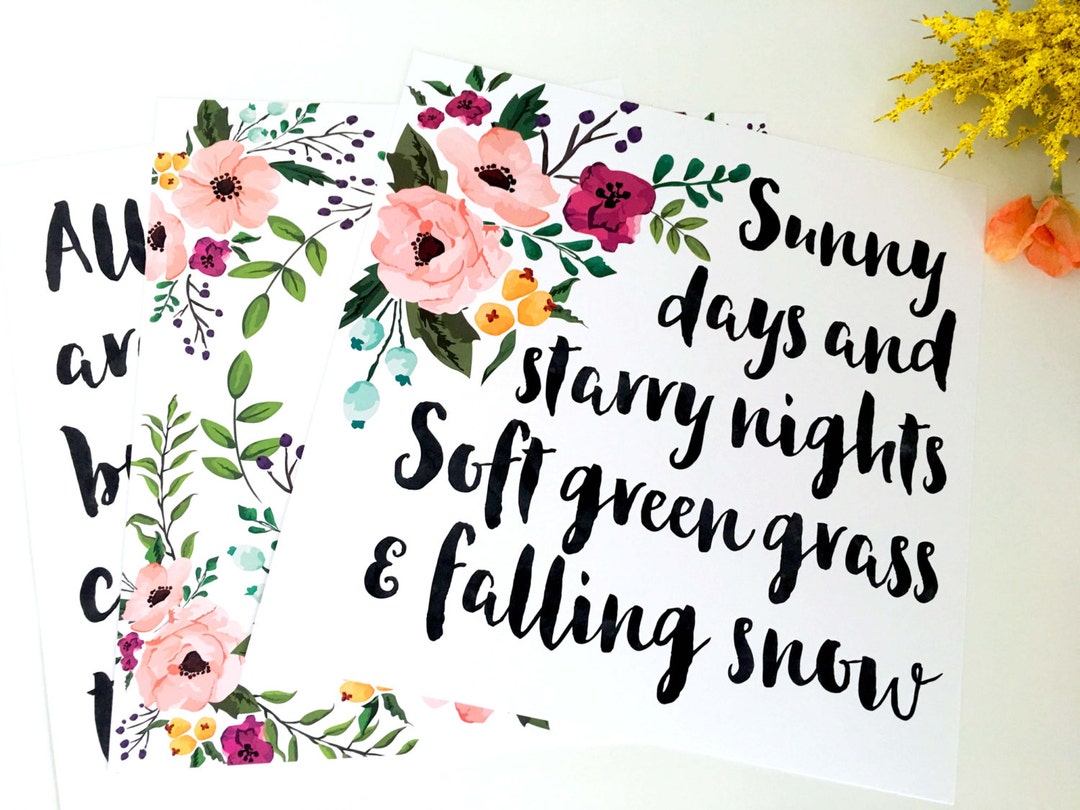 Sunny
days and
starry nights
Soft green grass
& falling snow
All